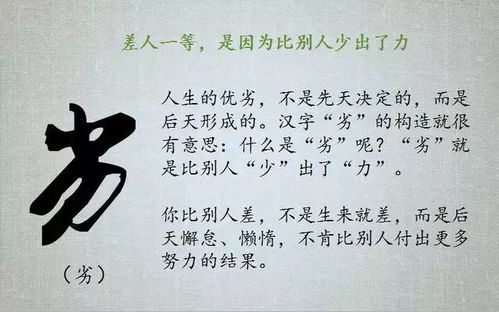 差人一等，是因为比别人少出了力
人生的优劣，不是先天决定的，而是
后天形成的。汉字“劣”的构造就很
有意思：什么是“劣”呢？“劣”就
是比别人“少”出了“力”。
你比别人差，不是生来就差，而是后
天懈怠、懒惰，不肯比别人付出更多
努力的结果。
劣
（劣）